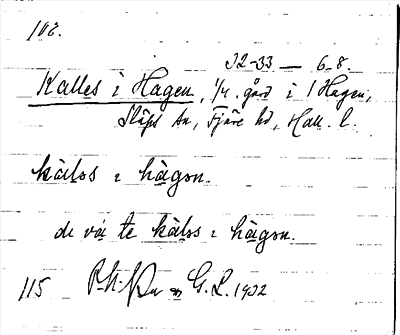 102.
32-33 — 6.8.
Kalles i Hagen, 1/4. gård i 1 Hagen,
Släps sn, Fjäre hd, Hall. l.
kàləs ɩ hàgən.
de va te kàləs ɩ hàgən.
115 G. L. 1932